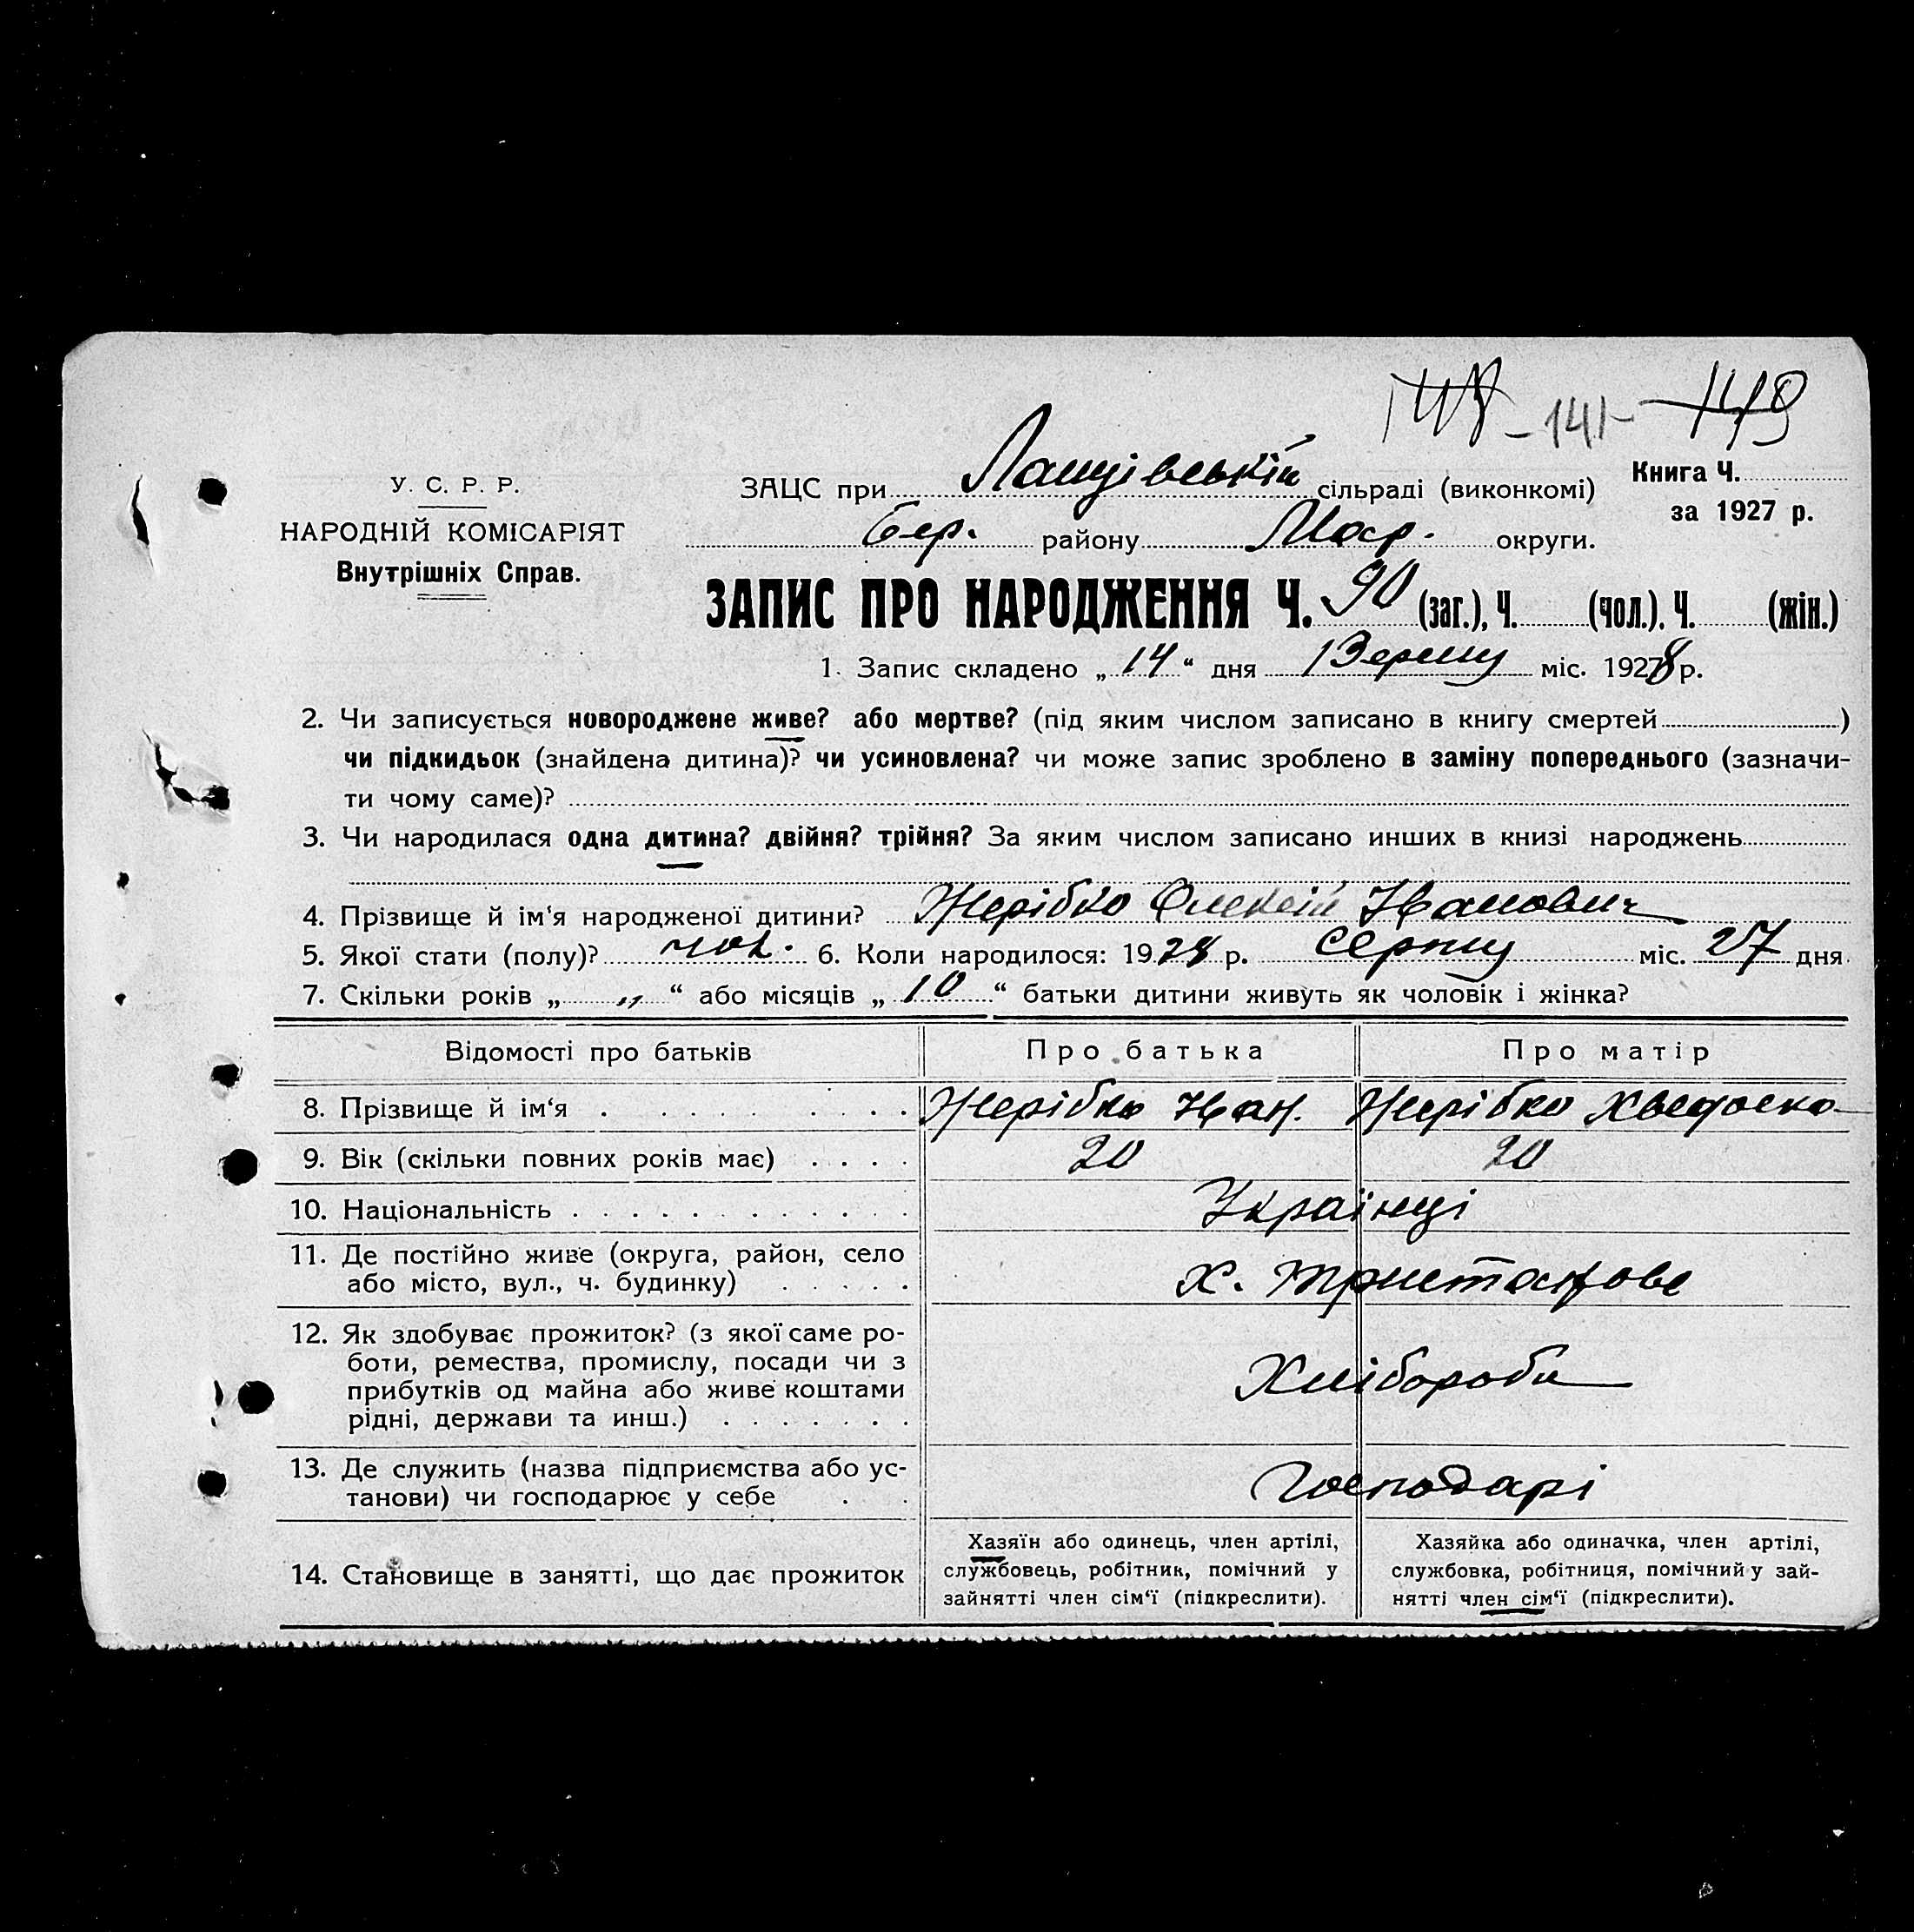 - 141 -
У. С. Р. Р.
НАРОДНІЙ КОМІСАРІЯТ
Внутрішніх Справ.
ЗАЦС при Лащівській сільраді (виконкомі)
Книга Ч.
за 1927 р.
Бер. району округи.
ЗАПИС ПРО НАРОДЖЕННЯ Ч. 90 (заг.), Ч. (чол.), Ч. (жін.)
1. Запис складено „ 14 “ дня Вересню міс. 1928 р.
2. Чи записується новороджене живе? або мертве? (під яким числом записано в книгу смертей )
чи підкидьок (знайдена дитина)? чи усиновлена? чи може запис зроблено в заміну попереднього (зазначи-
ти чому саме)?
3. Чи народилася одна дитина? двійня? трійня? За яким числом записано инших в книзі народжень
4. Прізвище й ім‘я народженої дитини? Жерібко Олексій Іванович
5. Якої стати (полу)? чол. 6. Коли народилося: 1928 р. серпню міс. 27 дня
7. Скільки років „ „ “ або місяців „ 10 “ батьки дитини живуть як чоловік і жінка?
Відомості про батьків Про батька Про матір
8. Прізвище й ім‘я Жерібко Іван. Жерібко Хведоска
9. Вік (скільки повних років має) 20 20
10. Національність Українці
11. Де постійно живе (округа, район, село
або місто, вул., ч. будинку) х.
12. Як здобуває прожиток? (з якої саме ро-
боти, ремества, промислу, посади чи з
прибутків од майна або живе коштами
рідні, держави та инш.) Хлібороби
13. Де служить (назва підприємства або ус-
танови) чи господарює у себе Господарі
14. Становище в занятті, що дає прожиток
Хазяїн або одинець, член артілі,
службовець, робітник, помічний у
зайнятті член сім‘ї (підкреслити).
Хазяйка або одиначка, член артілі,
службовка, робітниця, помічний у зай-
нятті член сім‘ї (підкреслити).